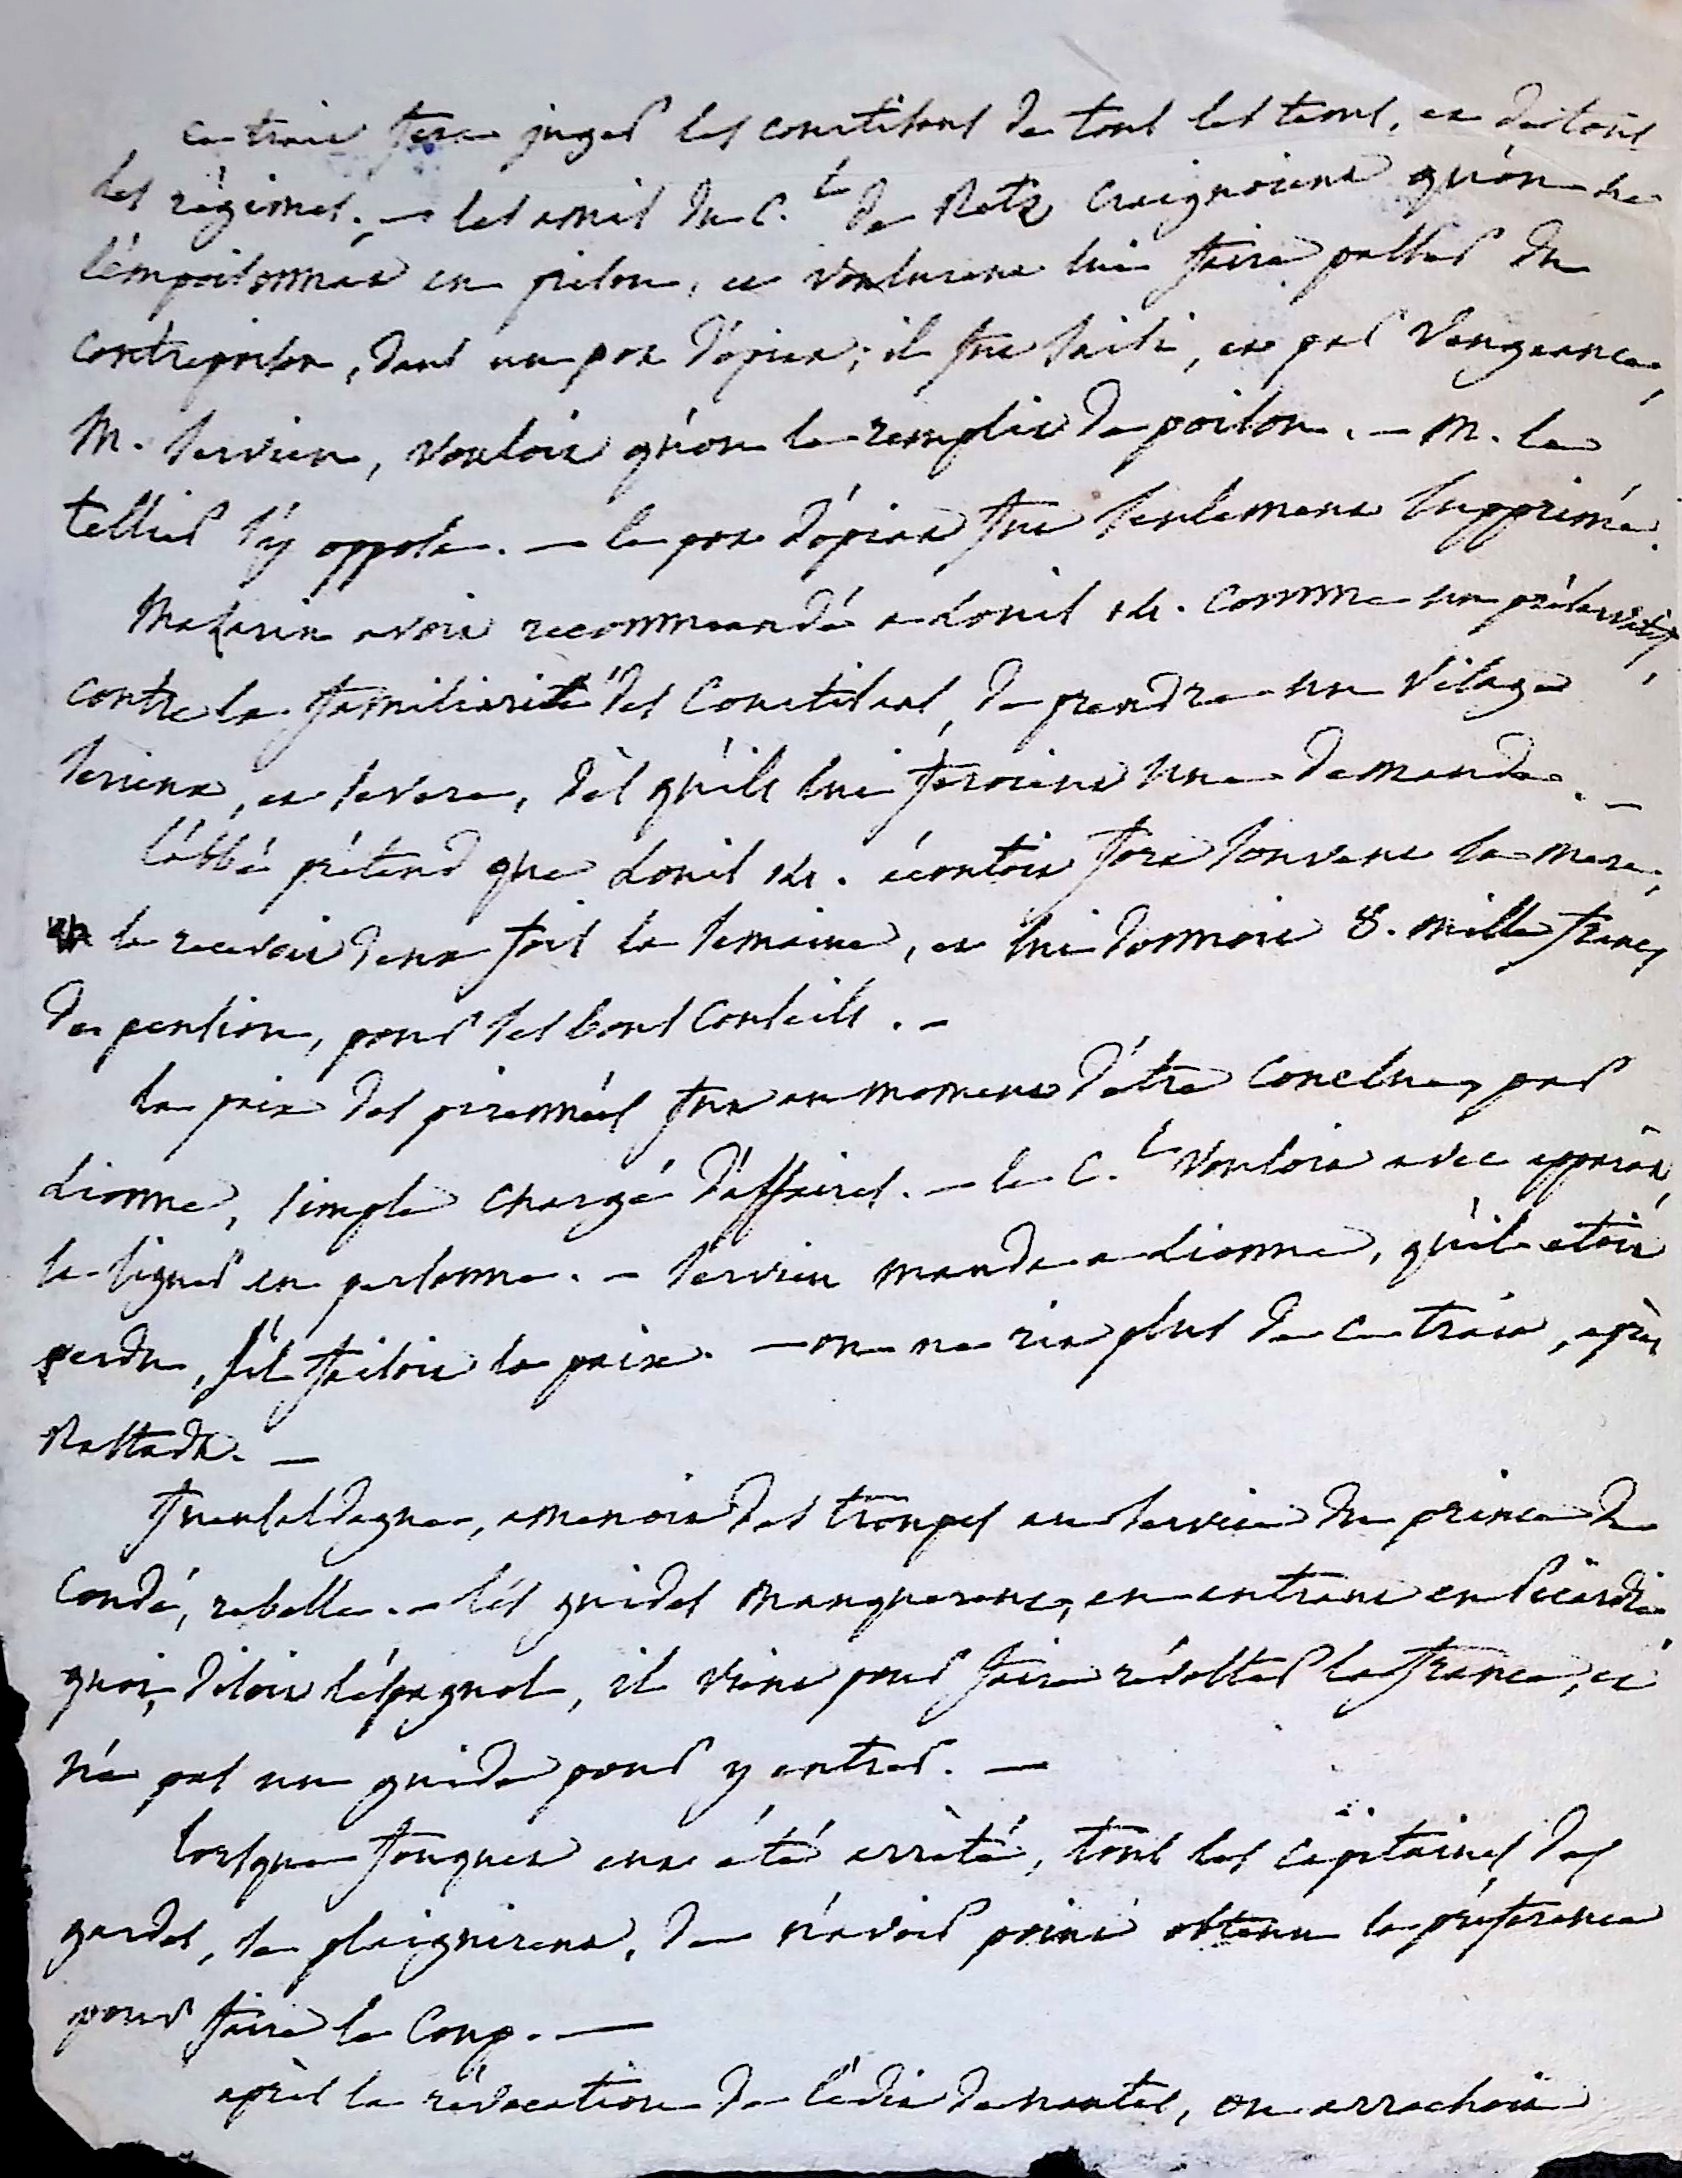 ce trait fera juger les courtisans de tous les tems, et de tous
les régimes. — les amis du C.al de Retz craignoient qu'on ne
l'empoisonnat en prison, et voulurent lui faire passer du
contrepoison, dans un pot d'opiat; il fut saisi, et par vengeance,
M. Servien, vouloit qu'on le remplit de poison. — M. le
tellier s'y opposa. — le pot d'opiat fut seulement supprimé.
Mazarin avoit recommandé a Louis 14. comme un préservatif,
contre la familiarité des Courtisans, de prendre un visage
serieux, et severe, dès qu'ils lui feroient une demande. —
l'abbé prétend que Louis 14. écoutoit fort souvent sa mere;
la recevoit deux fois la semaine, et lui donnoit 8. mille francs
de pension, pour ses bons conseils. —
la paix des pirennées fut au moment d'être conclue, par
Lionne, simple chargé d'affaires. — le C.al vouloit avec apparat,
la signer en personne. — Servien manda a Lionne, qu'il etoit
perdu, s'il faisoit la paix. — on ne rit plus de ce trait, après
Rastadt. —
fuensaldagne, amenoit des troupes au service du prince de
Condé, rebelle. — les guides manquerent, en entrant en Picardie
quoi, disoit l'éspagnol, il vient pour faire révolter la france, et
n'a pas un guide pour y entrer. —
lorsque fouquet eut été arrèté, tous les capitaines des
gardes, se plaignirent, de n'avoir point obtenu la préférence
pour faire le coup. —
après la révocation de l'édit de nantes, on arrachoit